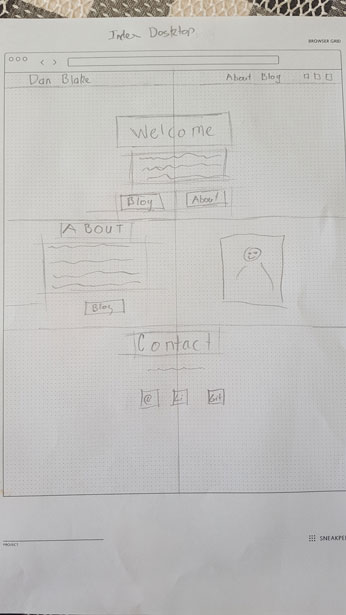 Index Desktop
BROWSER GRID
Dan Blake About Blog
Welcome
Blog About
ABOUT
Blog
Contact
@ Li Git
PROJECT
SNEAKPE